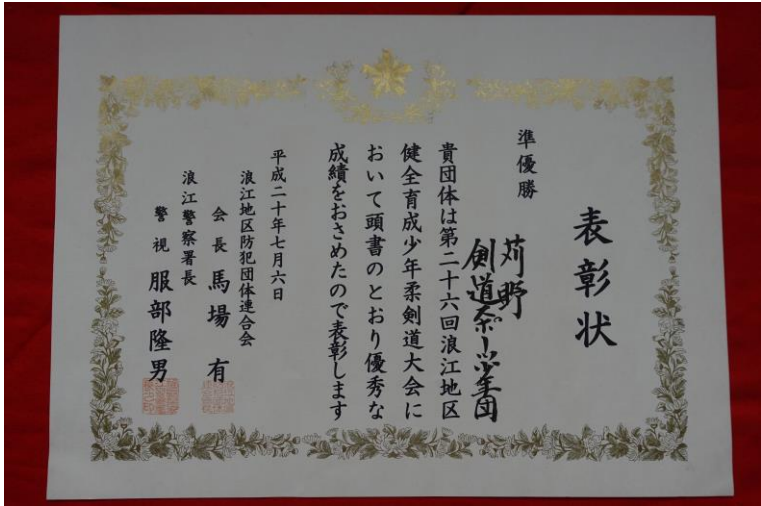 表彰状
準優勝
苅野
剣道スポーツ少年団
貴団体は第二十六回浪江地区
健全育成少年柔剣道大会に
おいて頭書のとおり優秀な
成績をおさめたので表彰します
平成二十年七月六日
浪江地区防犯団体連合会
会長 馬場 有
浪江警察署長
警視 服部隆男